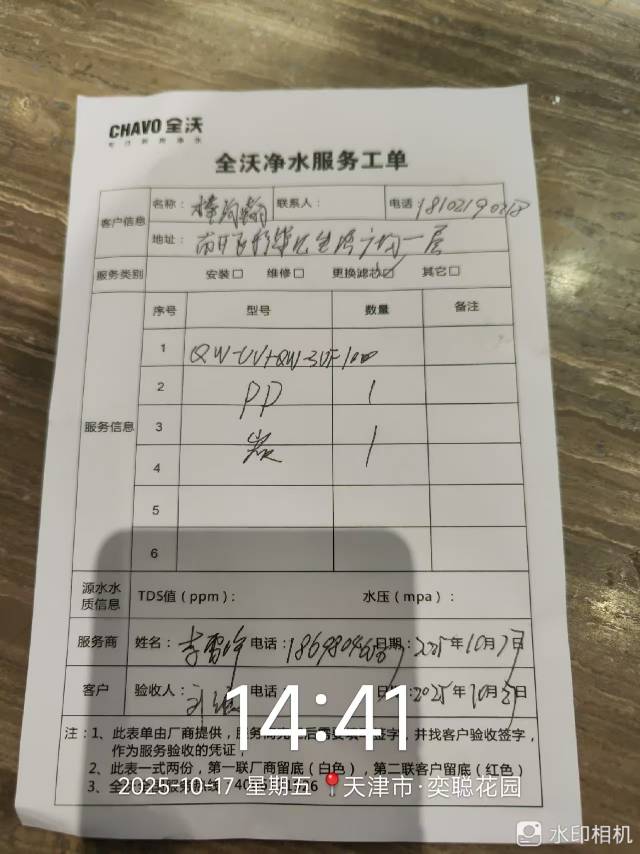 CHAVO 全沃
专注厨房净水
全沃净水服务工单
客户信息 名称： 联系人： 电话
地址： 一层
服务类别 安装□ 维修□ 更换滤芯□ 其它□
服务信息 序号 型号 数量 备注
1 QW-UV+QW-3UF100
2 PP 1
3 炭 1
4
5
6
源水水质信息 TDS值（ppm）： 水压（mpa）：
服务商 姓名： 电话： 日期：2025年10月17日
客户 验收人： 电话 2025年10月 日
14:41
注：1、此表单由厂商提供，服务商 签字，并找客户验收签字，
作为服务验收的凭证；
2、此表一式两份，第一联厂商留底（白色），第二联客户留底（红色）
3、全
2025-10-17 星期五 天津市·奕聪花园
水印相机